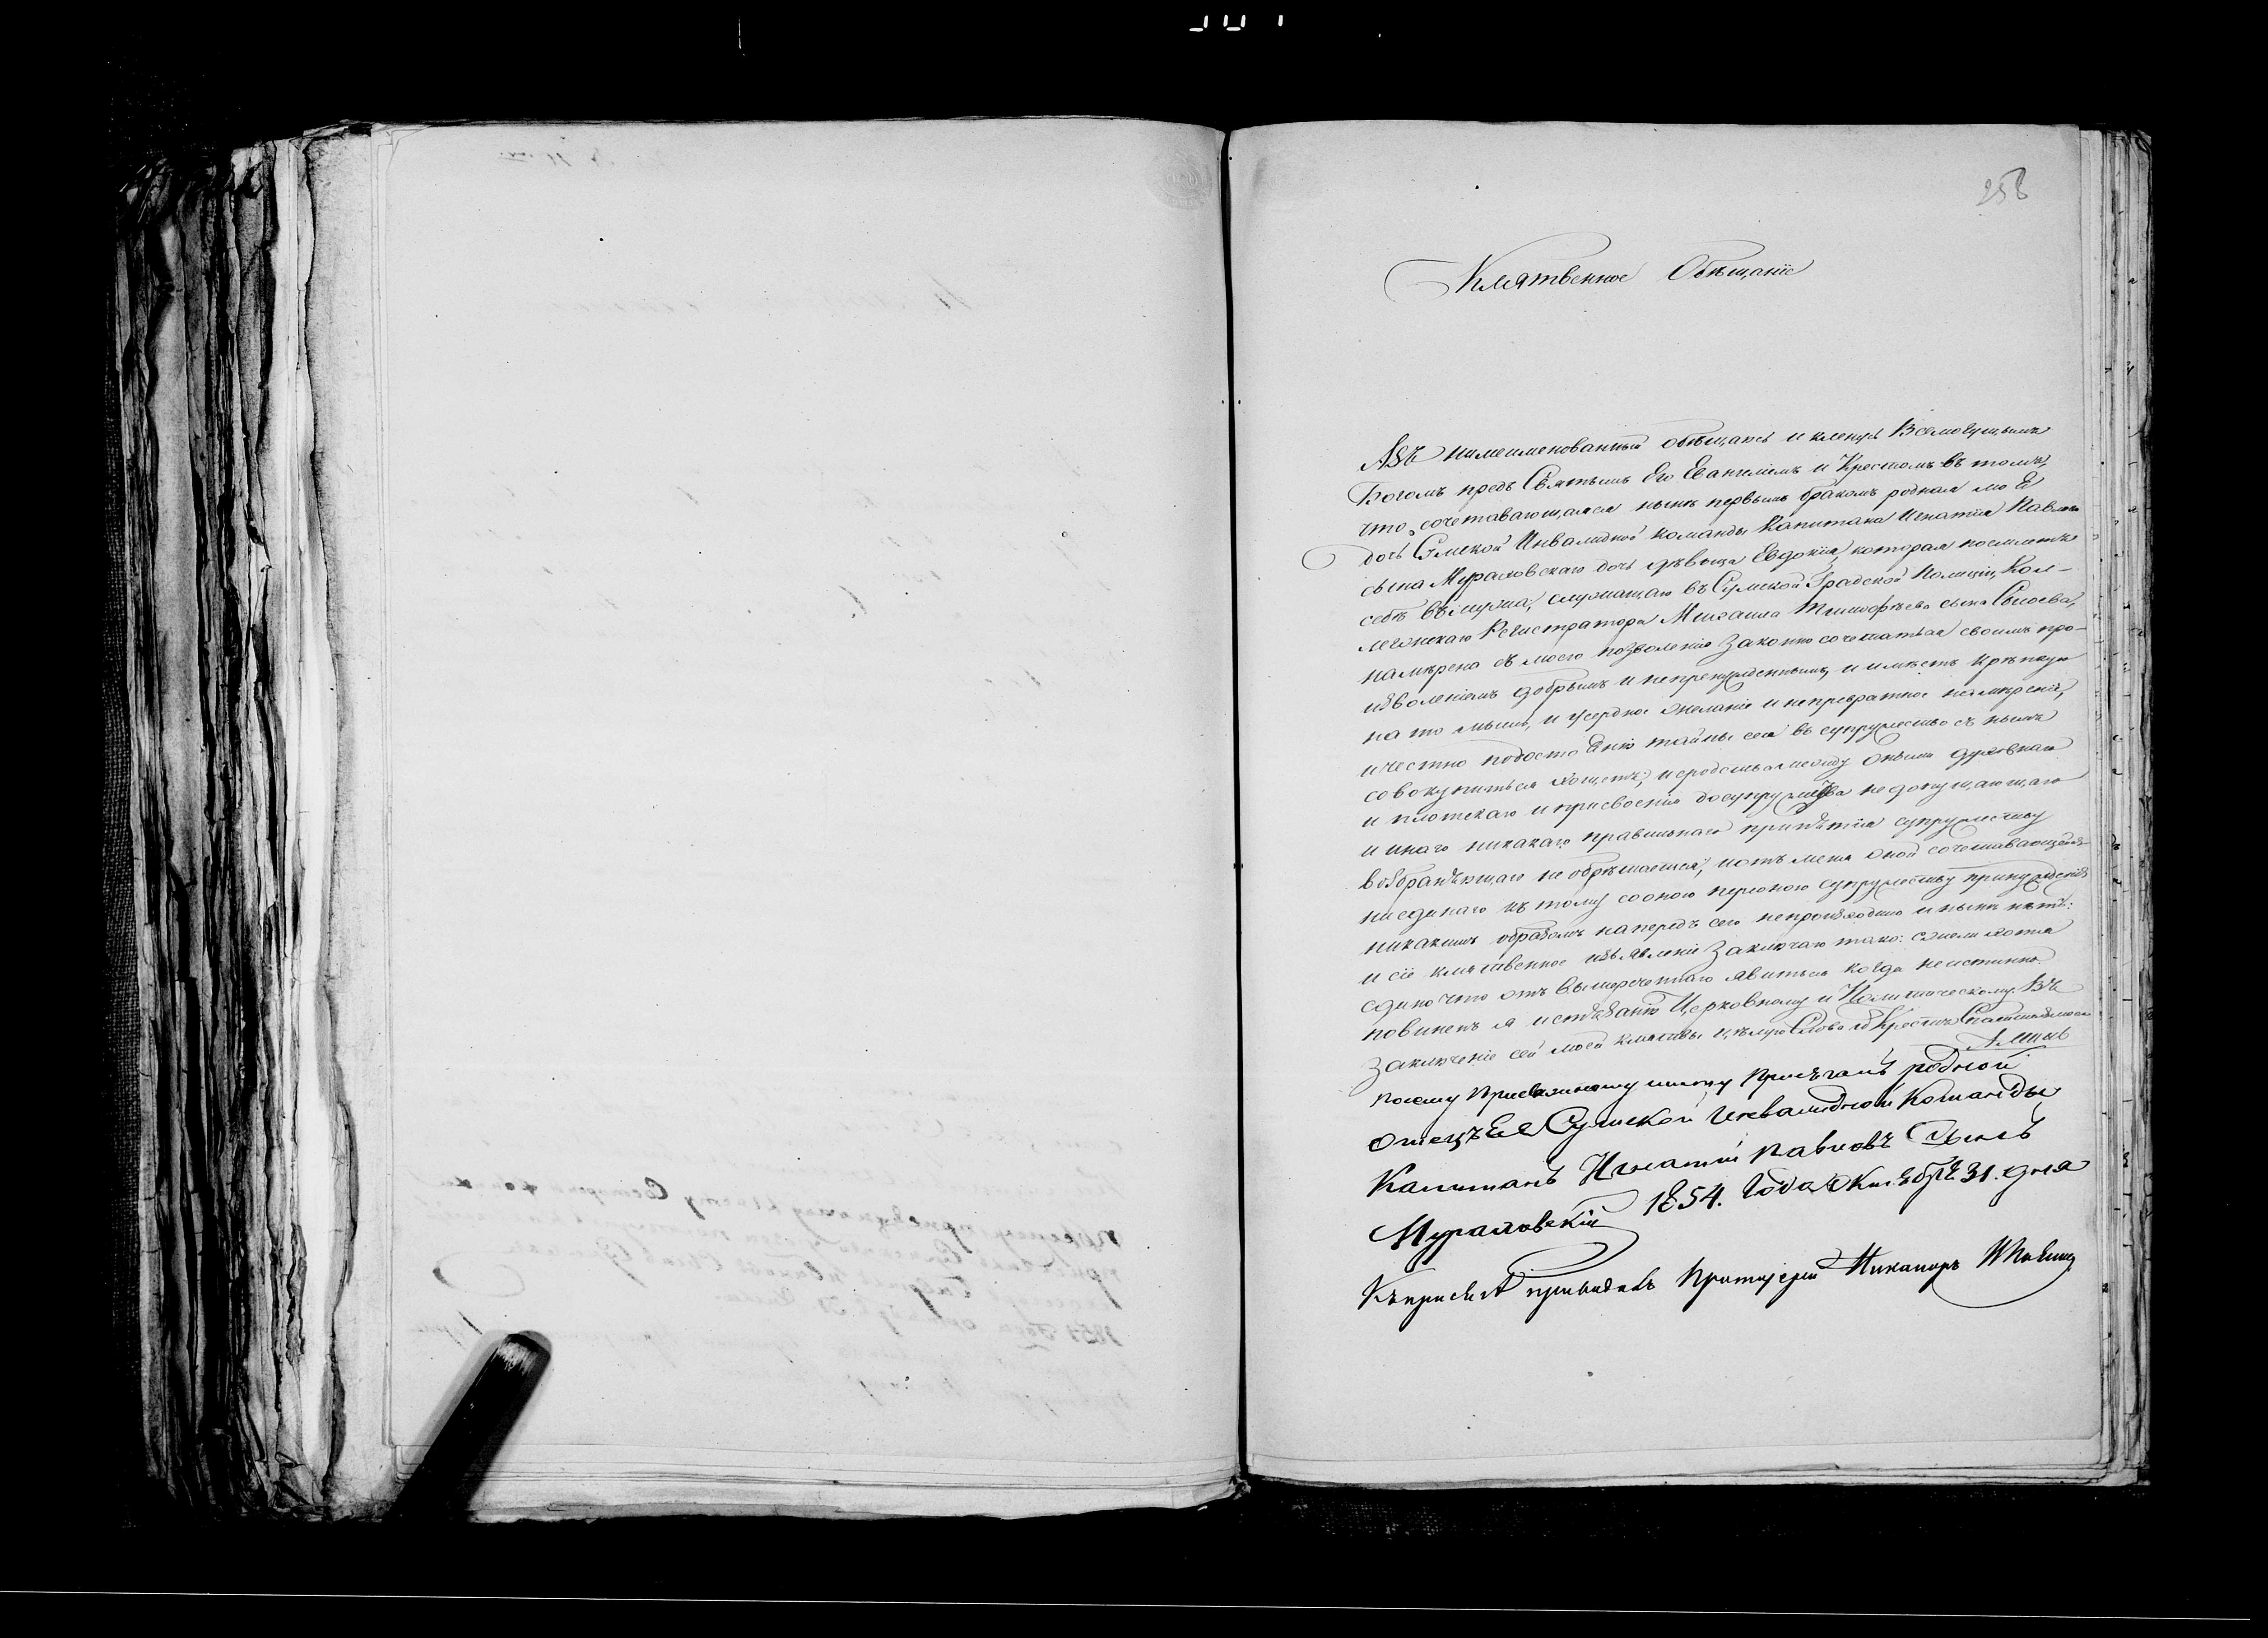 258
Клятвенное Обѣщаніе
Азъ нижеименованный обѣщаюсь и кленусь Всемогущимъ
Богомъ предъ Святымъ Его Евангеліемъ и Крестомъ въ томъ,
что, сочетавающаяся нынѣ первымъ бракомъ родная моЕ
дочь Сумской Инвалидной команды Капитана Игнатія Павлова
сына Мураховскаго дочь дѣвица Евдокія, которая поемлетъ
себѣ въ мужа, служащаго въ Сумской Градской Полиціи, Кол-
лежскаго Регистратора Михаила Тимофѣева сына Сысоева,
намѣрена съ моего позволенія Законно сочетаться своимъ про-
изволеніемъ добрымъ и непренужденнымъ, и имѣетъ крѣпкую
на то мысль, и усердное желаніе и непревратное намѣреніе,
и честно подостоЕнію тайны сея въ супружество съ нимъ
совокупиться хощетъ; и сродства между оными духовнаго
и плотскаго и присвоенія досупружества недопущающаго
и инаго никакаго правильнаго припятія супружеству
возбраняющаго не обрѣтается; иотъ меня оной сочетавающейся
ниединаго къ тому сооною персоною супружеству принужденія
никакимъ образомъ напередъ сего непроизходило и нынѣ нѣтъ:
и сіе клятвенное изъявленіе Заключаю тако: ежели хотя
едино что отъ вышеречетнаго явиться когда неистинно.
повиненъ я истязанію Церковному и Политическому. Въ
Заключеніе сей моей клятвы цѣлую Слова и Крестъ Спасителя моего
Аминь
Посему Присяжному листу Присягалъ родной
отецъ Ее Сумской Инвалидной Команды
Капитанъ Игнатій Павловъ Сынъ
Мураховскій 1854. Года Октября 31. дня
Къ присягѣ приводилъ Протоіерей Никаноръ